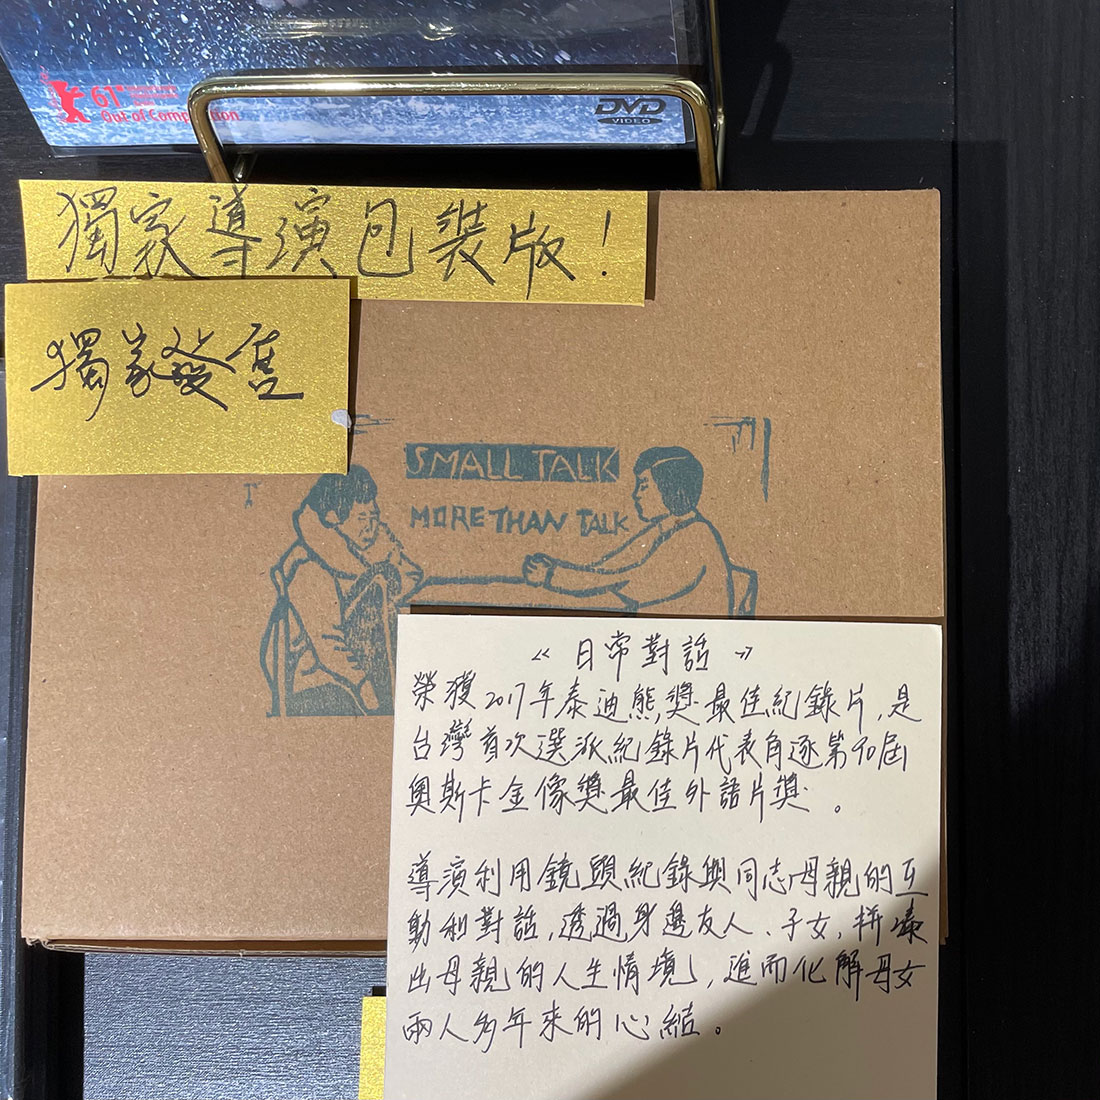 61
Out of Competition
DVD
VIDEO
獨家導演包裝版！
獨家發售
SMALL TALK
MORE THAN TALK
《日常對話》
榮獲2017年泰迪熊獎最佳紀錄片，是
台灣首次選派紀錄片代表角逐第90屆
奧斯卡金像獎最佳外語片獎。
導演利用鏡頭紀錄與同志母親的互
動和對話，透過身邊友人、子女，拼湊
出母親的人生情境，進而化解母女
兩人多年來的心結。